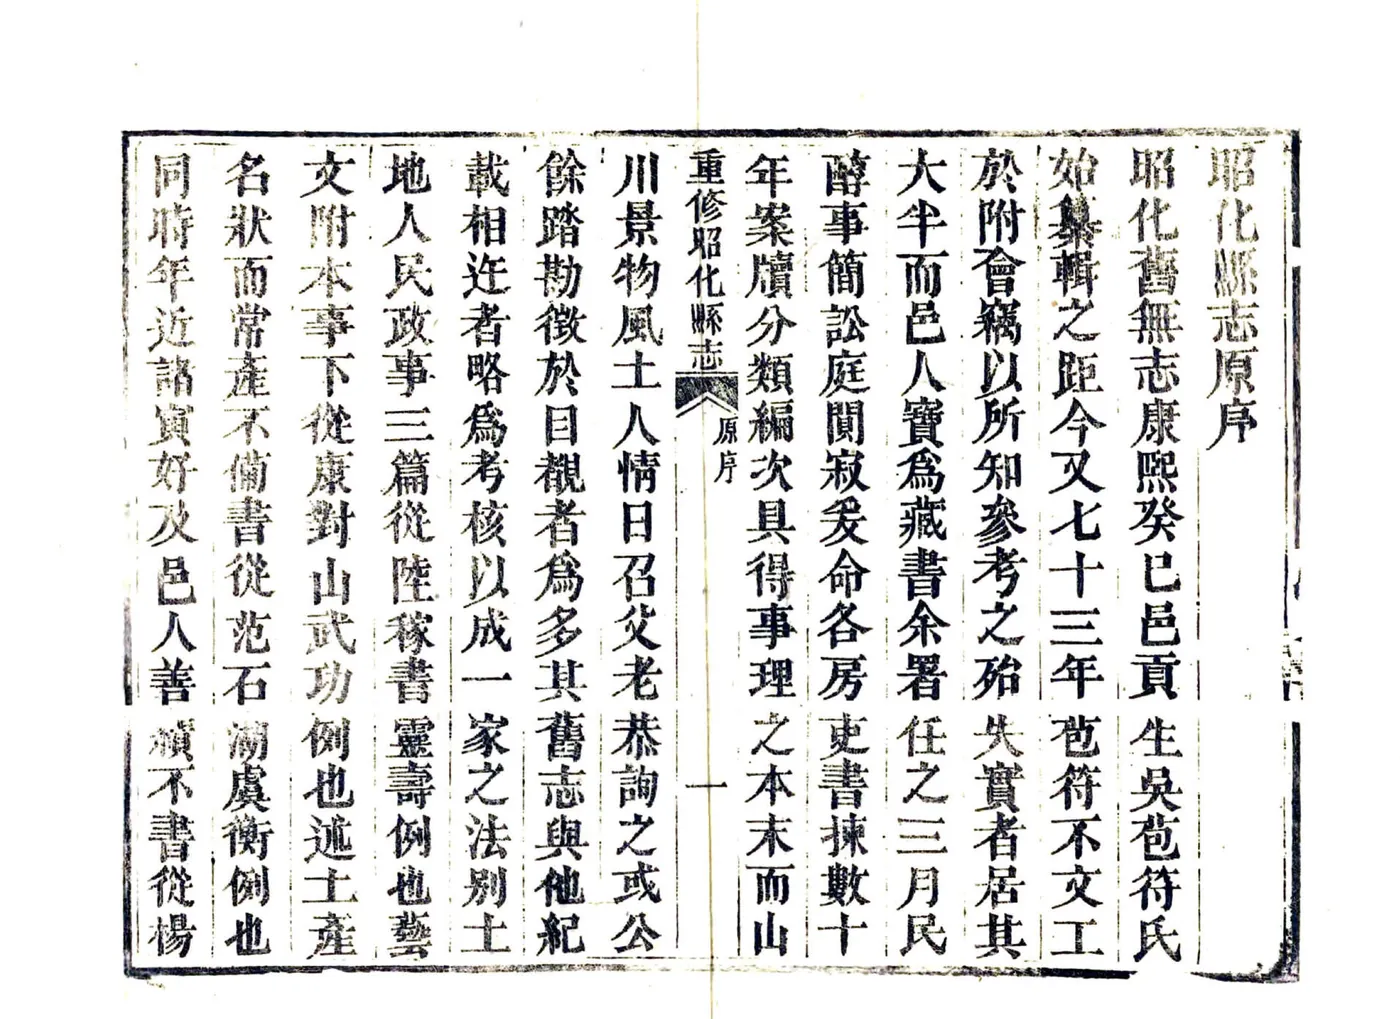 昭化縣志原序
昭化舊無志康熙癸巳邑貢生吳苞符氏
始纂輯之距今又七十三年苞符不文工
於附會竊以所知參考之殆失實者居其
大半而邑人寶爲藏書余署任之三月民
醇事簡訟庭閴寂爰命各房吏書揀數十
年案牘分類編次具得事理之本末而山
重修昭化縣志
原序
一
川景物風土人情日召父老恭詢之或公
餘踏勘徵於目覩者爲多其舊志與他紀
載相迕者略爲考核以成一家之法別土
地人民政事三篇從陸稼書靈壽例也藝
文附本事下從康對山武功例也述土產
名狀而常產不備書從范石湖虞衡例也
同時年近諮寅好及邑人善績不書從楊